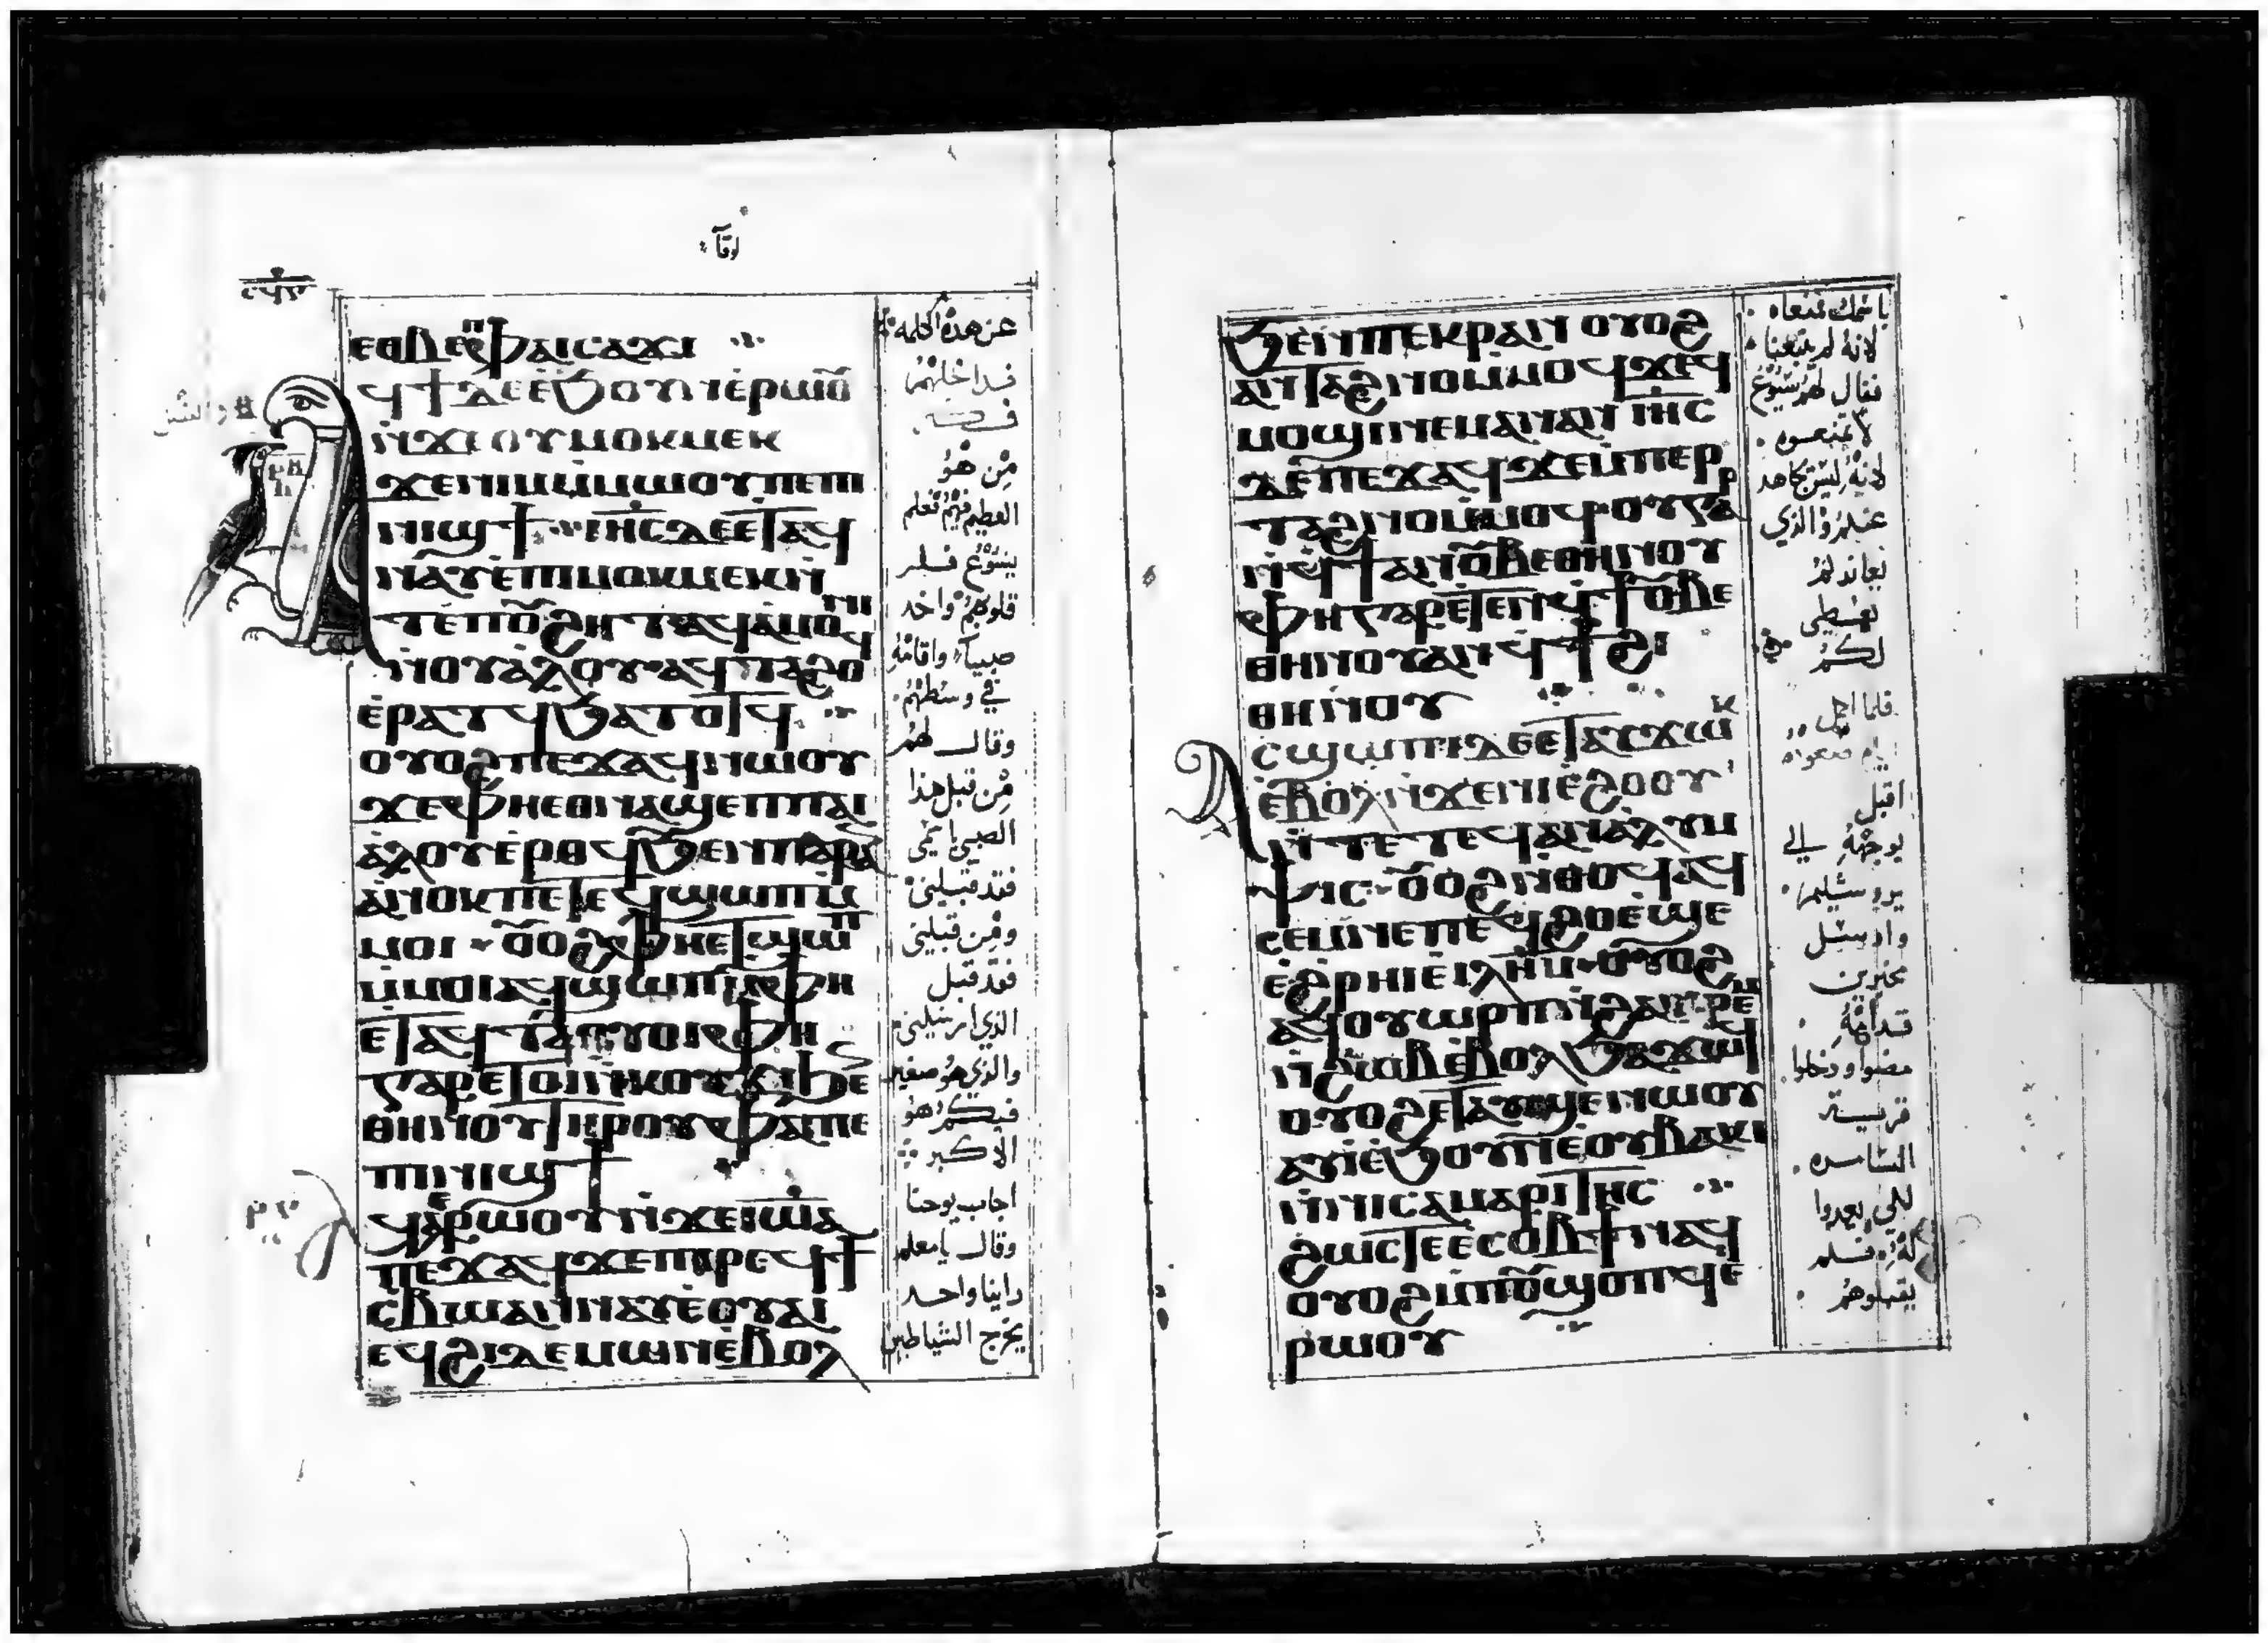 لوقا
ⲉⲑⲃⲉⲡⲫⲁⲓⲥⲁϫⲓ
ⲁϥϯⲇⲉⲉ̀ϧⲟⲩⲛⲉ̀ⲣⲱⲟ̅
ⲛ̀ϫⲉⲟⲩⲙⲟⲕⲙⲉⲕ
ϫⲉⲛⲓⲙⲙ̀ⲙⲱⲟⲩⲡⲉⲡⲓ
ⲛⲓϣϯ ⲓⲏ̅ⲥ̅ⲇⲉⲉⲧⲁϥ
ⲛⲁⲩⲉ̀ⲡⲓⲙⲟⲕⲙⲉⲕⲛ̀
ⲧⲉⲡⲟ̅ϩⲏⲧⲁϥⲁ̀ⲙⲟⲛⲓ
ⲛ̀ⲟⲩⲁ̀ⲗⲟⲩⲁϥⲧⲁϩⲟ
ⲉ̀ⲣⲁⲧϥϧⲁⲧⲟⲧϥ
ⲟⲩⲟϩⲡⲉϫⲁϥⲛⲱⲟⲩ
ϫⲉⲫⲏⲉⲑⲛⲁϣⲉⲡⲡⲁⲓ
ⲁ̀ⲗⲟⲩⲉ̀ⲣⲟϥϧⲉⲛⲡⲁⲣⲁⲛ
ⲁ̀ⲛⲟⲕⲡⲉⲧⲉϥϣⲱⲡⲙ̀
ⲙⲟⲓ ⲟ̅ⲟϩⲫⲏⲉⲧϣⲱⲡ
ⲙ̀ⲙⲟⲓⲁϥϣⲱⲡⲙ̀ⲫⲏ
ⲉⲧⲁϥⲧⲁⲟⲩⲟⲓⲫⲏ
ⲅⲁⲣⲉⲧⲟⲓⲛ̀ⲕⲟⲩϫⲓϧⲉⲛ
ⲑⲏⲛⲟⲩⲧⲏⲣⲟⲩⲫⲁⲓⲡⲉ
ⲡⲓⲛⲓϣϯ
ⲁϥⲉⲣⲟⲩⲱ̀ⲛ̀ϫⲉⲓⲱ̅ⲁ̅
ⲡⲉϫⲁϥϫⲉⲫⲣⲉϥϯ
ⲥⲃⲱⲁⲛⲛⲁⲩⲉ̀ⲟⲩⲁⲓ
ⲉϥϩⲓⲇⲉⲙⲱⲛⲉ̀ⲃⲟⲗ
عن هذه الكلمه
فداخلهم
فكر
من هو
العظيم فيهم فعلم
يسوع فكر
قلوبهم واخد
صبيا واقامه
في وسطهم
وقال لهم
من قبل هذا
الصبي باسمي
فقد قبلني
ومن قبلني
فقد قبل
الذي ارسلني
والذي هو صغير
فيكم هو
الاكبر
اجاب يوحنا
وقال يا معلم
راينا واحد
يخرج الشياطين
ϧⲉⲛⲡⲉⲕⲣⲁⲛ ⲟⲩⲟϩ
ⲁⲛⲧⲁϩⲛⲟⲙ̀ⲙⲟϥϫⲉϥ
ⲙⲟϣⲓⲛⲉⲙⲁⲛⲁⲛ ⲓⲏ̅ⲥ̅
ⲇⲉⲡⲉϫⲁϥϫⲉⲙ̀ⲡⲉⲣ
ⲧⲁϩⲛⲟⲙ̀ⲙⲟϥ ⲟⲩⲅⲁⲣ
ⲛ̀ϥϯⲁⲛⲟ̅ⲃⲉⲑⲏⲛⲟⲩ
ⲫⲏⲅⲁⲣⲉ̀ⲧⲉⲛϥϯⲟ̅ⲃⲉ
ⲑⲏⲛⲟⲩⲁⲛϥϯϩⲓ
ⲑⲏⲛⲟⲩ
ⲁⲥϣⲱⲡⲓⲇⲉⲉⲧⲁⲥϫⲱⲕ
ⲉ̀ⲃⲟⲗⲛ̀ϫⲉⲛⲓⲉ̀ϩⲟⲟⲩ
ⲛ̀ⲧⲉⲧⲉϥⲁⲛⲁ̀ⲗⲩⲙ
ⲯⲓⲥ ⲟ̅ⲟϩⲛ̀ⲑⲟϥⲁϥ
ⲥⲉⲙⲛⲉⲡⲉϥϩⲟⲉ̀ϣⲉ
ⲉ̀ϩⲣⲏⲓⲉ̀ⲓ̅ⲗ̅ⲏ̅ⲙ̅ ⲟⲩⲟϩ
ⲁϥⲟⲩⲱⲣⲡⲛ̀ϩⲁⲛⲣⲉⲙ
ⲛ̀ϩⲱⲃⲉ̀ⲃⲟⲗϧⲁϫⲱϥ
ⲟⲩⲟϩⲉⲧⲁⲩϣⲉⲛⲱⲟⲩ
ⲁⲩⲓⲉ̀ϧⲟⲩⲛⲉ̀ⲟⲩⲃⲁⲕⲓ
ⲛ̀ⲛⲓⲥⲁⲙⲁⲣⲓⲧⲏⲥ
ϩⲱⲥⲧⲉⲉ̀ⲥⲟⲃϯⲛⲁϥ
ⲟⲩⲟϩⲙ̀ⲡⲟ̅ϣⲟⲡϥⲉ̀
ⲣⲱⲟⲩ
باسمك فمنعناه
لانه لم يتبعنا
فقال لهم يسوع
لا تمنعوه
لانه ليس يجاهد
عنكم والذي
يعاند لكم
يعطي
لكم
فلما اكمل
ايام صعوده
اقبل
بوجهه الي
يروشليم
وارسل
مخبرين
قدامه
مضوا ودخلوا
قرية
السامره
لكي يعدوا
له فلم
يقبلوهم